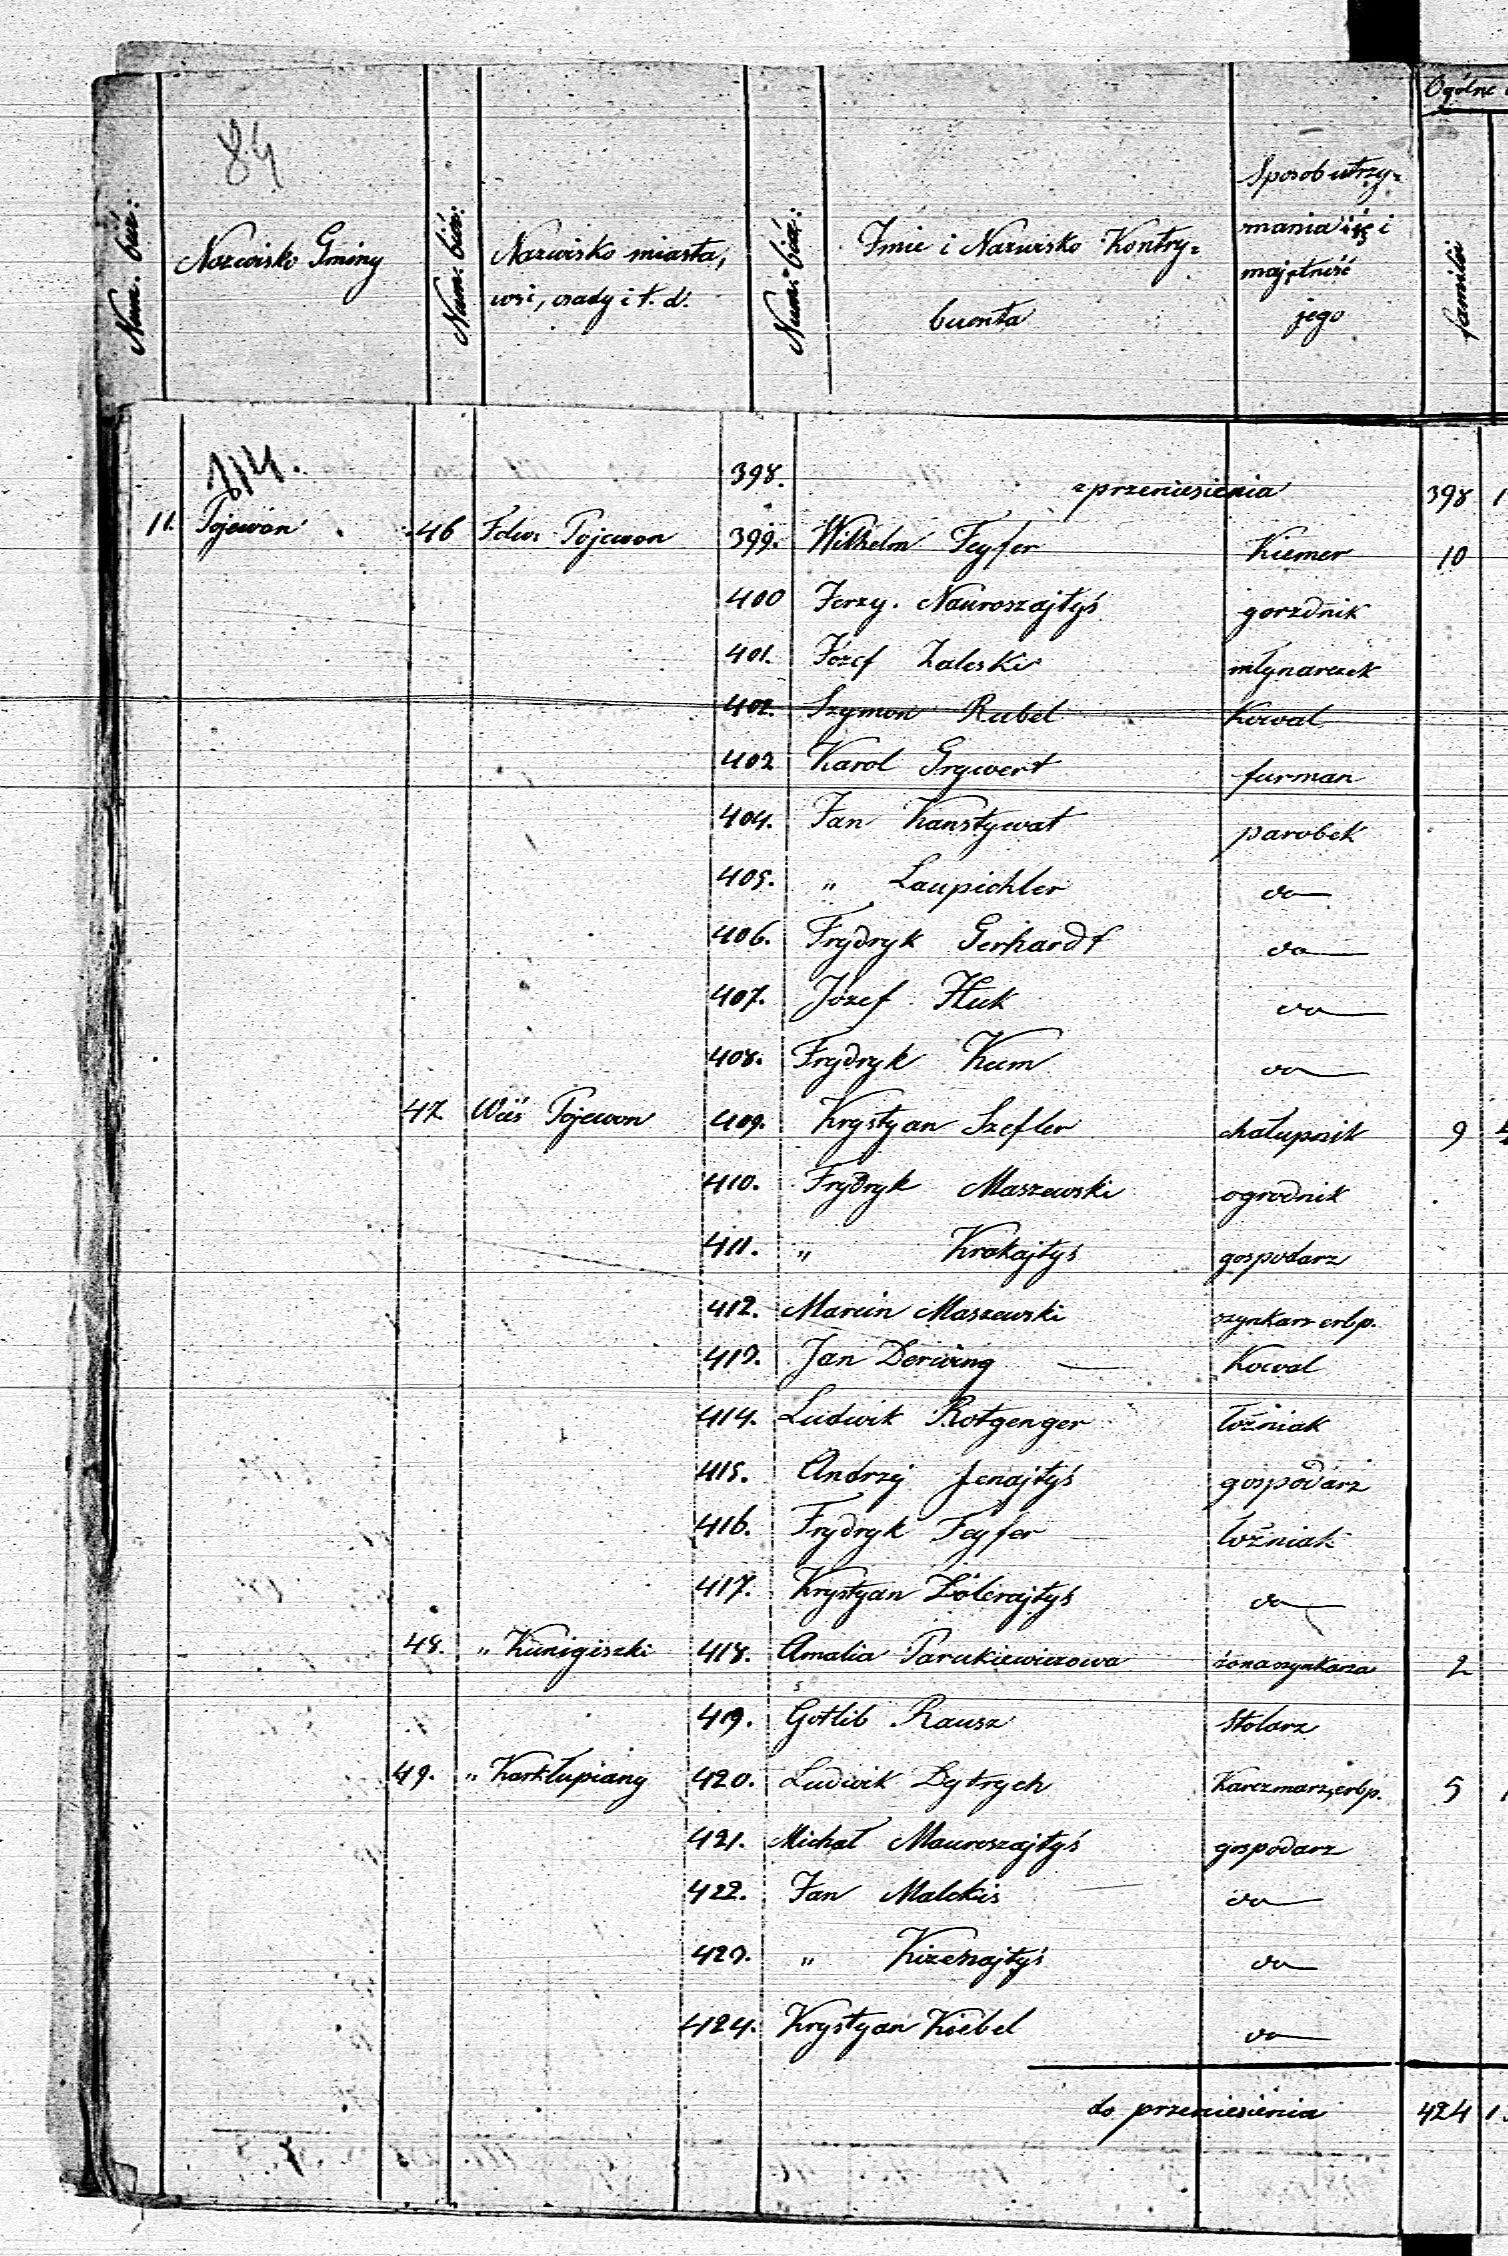 Ogólne
84
Num. bież:
Nazwisko Gminy
Num. bież:
Nazwisko miasta,
wsi, osady i t. d.
Num. bież:
Imie i Nazwisko Kontry=
buenta
Sposob utrzy=
mania się i
majętność
jego
familii
114.
398. z przeniesienia 398
11. Pojewon 46 Folw. Pojewon 399. Wilhelm Feyfer Kiemer 10
400 Jerzy Nauroszajtyś gorzdnik
401. Józef Zaleski młynarczek
402. Szymon Rubel Kowal
402 Karol Grywert furman
404. Jan Kanstywat parobek
405. " Laupichler do
406. Frydryk Gerhardt do
407. Józef Huk do
408. Frydryk Kum do
47 Wieś Pojewon 409. Krystyan Szefler chałupnik 9
410. Frydryk Maszewski ogrodnik
411. " Krakajtyś gospodarz
412. Marcin Maszewski szynkarz erbp.
413. Jan Derwing Kowal
414. Ludwik Rotgenger łoźniak
415. Andrzej Jenajtyś gospodarz
416. Frydryk Feyfer łoźniak
417. Krystyan Zölerajtyś do
48. " Kunigiszki 418. Amalia Parukiewiczowa żona szynkarza 2
419. Gotlib Rausz stolarz
49. " Karkłupiany 420. Ludwik Dytrych Karczmarz, erbp. 5
421. Michał Mauroszajtyś gospodarz
422. Jan Malckis do
423. " Kizenajtyś do
424. Krystyan Kiebel do
do przeniesienia 424